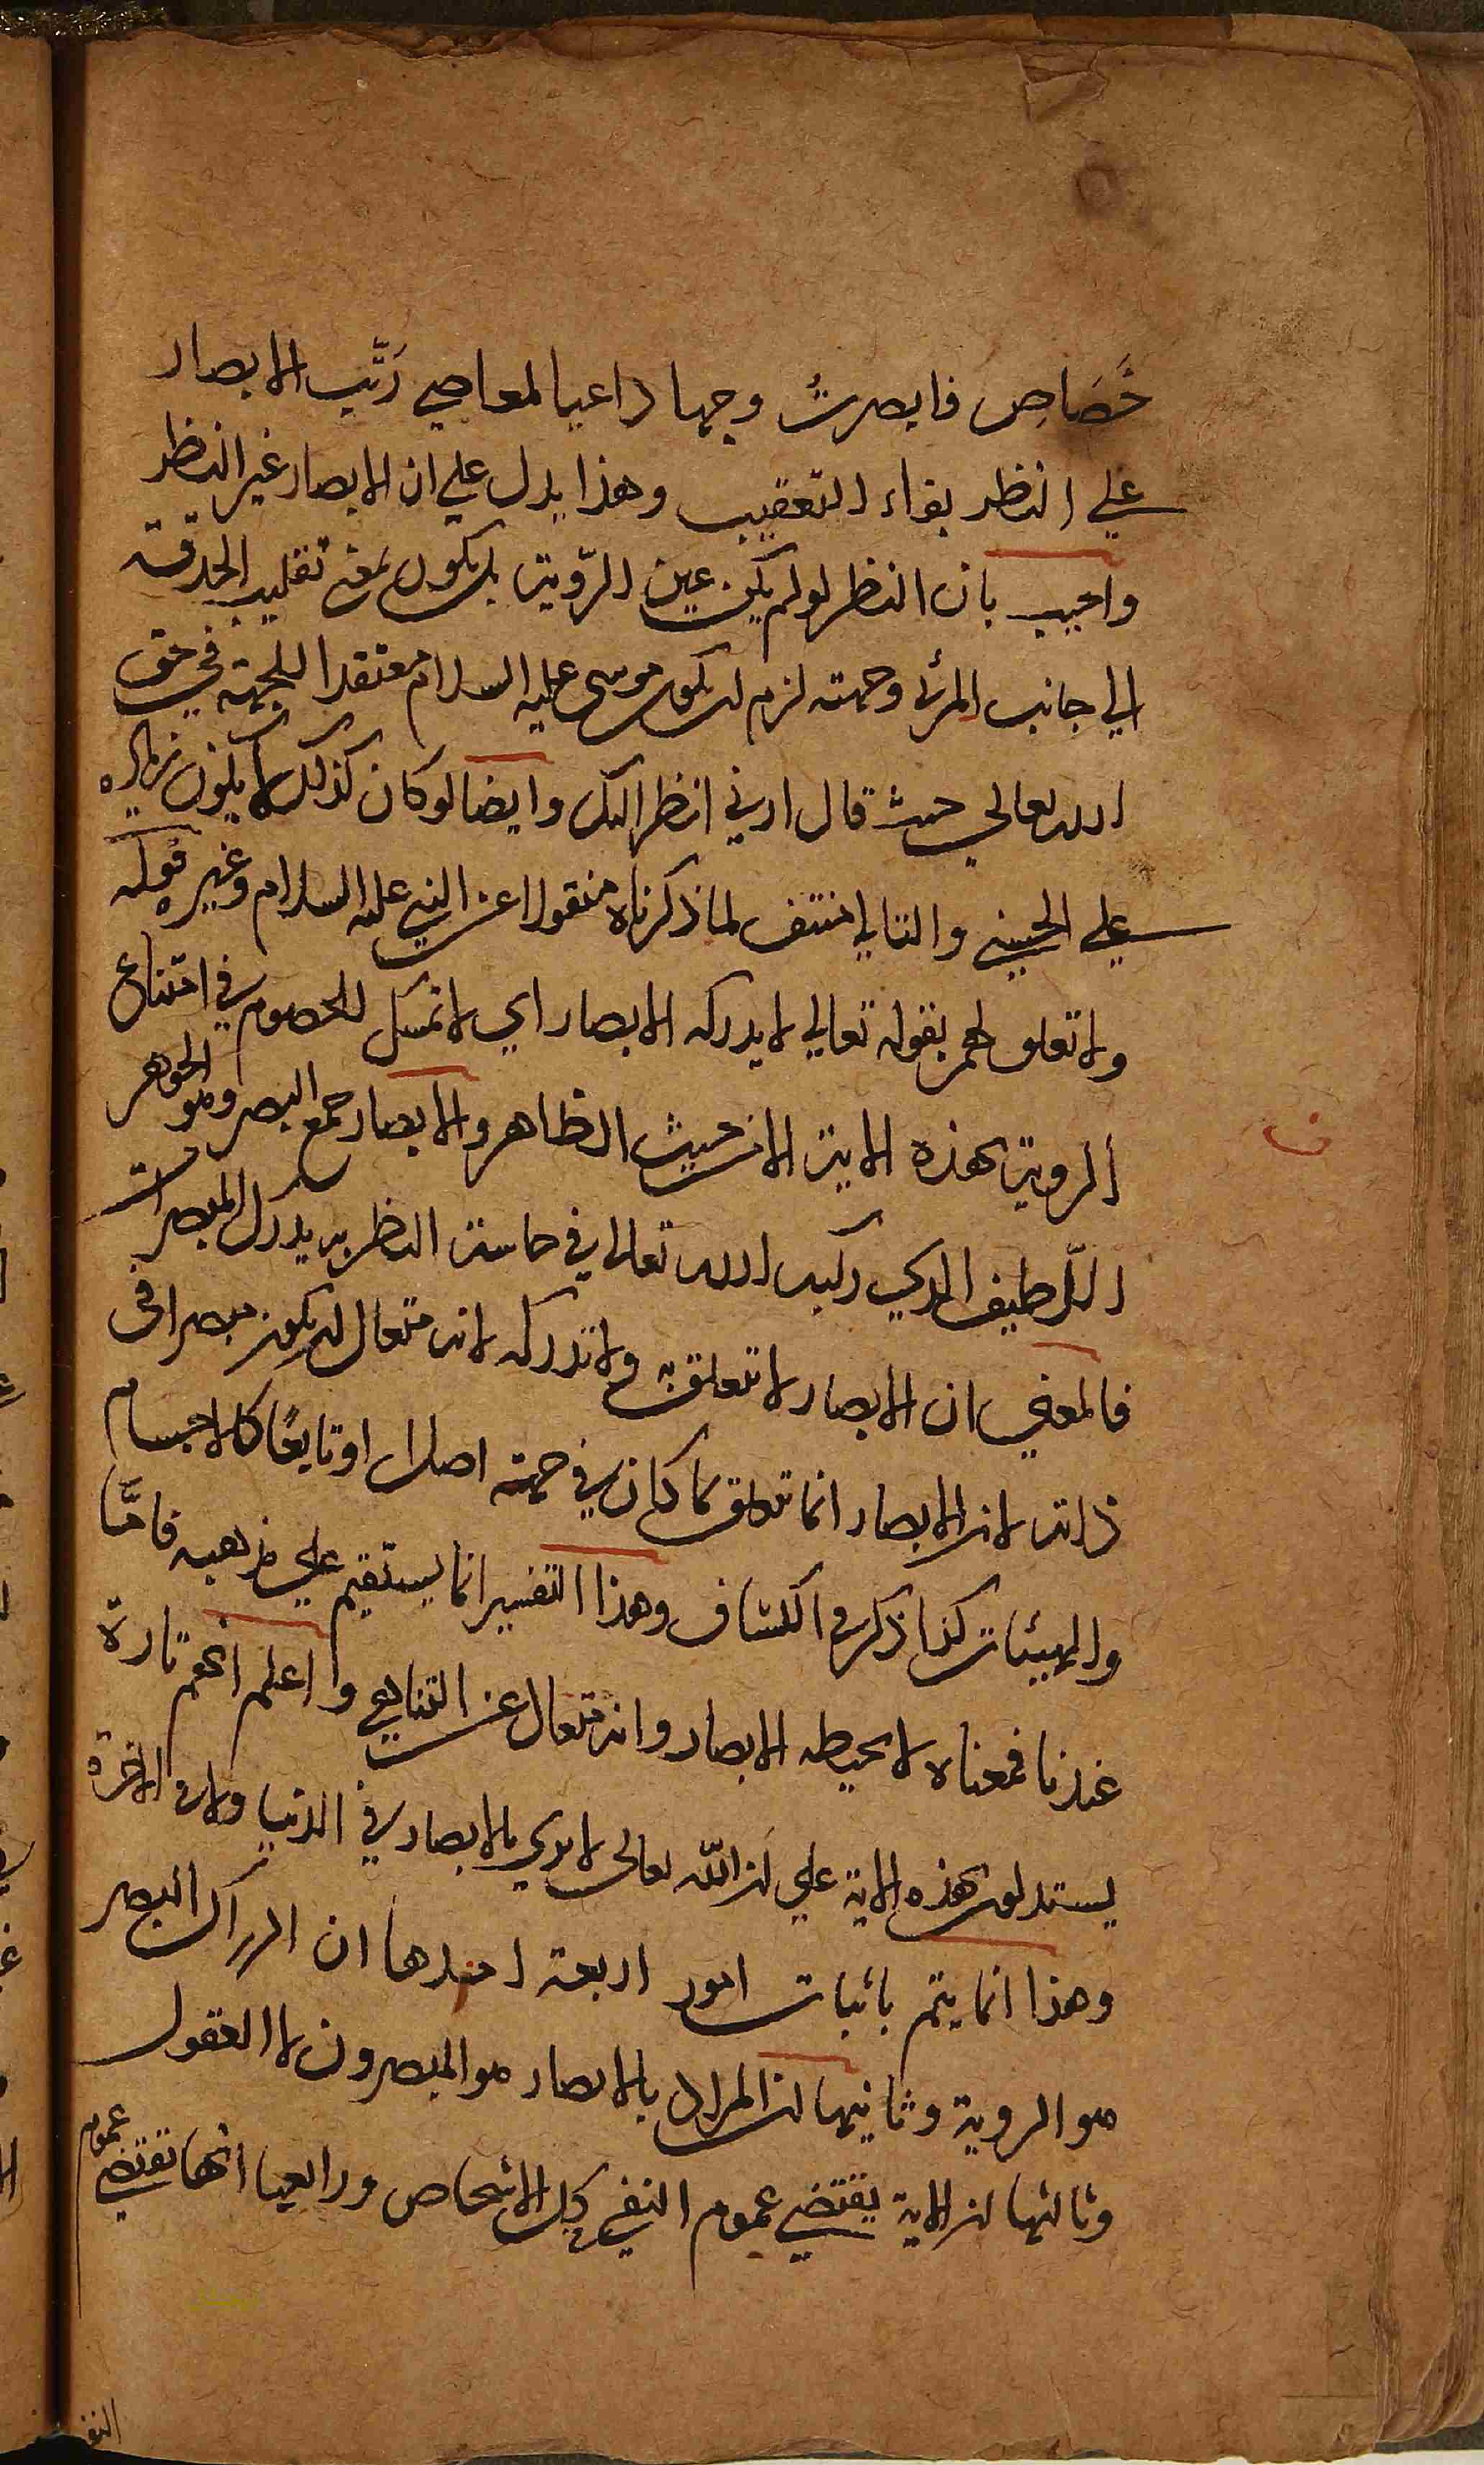 خَصَاصٍ فابصرتُ وجها داعيا لمعاصي رَتَّب الابصار
علي النظر بفاء التعقيب وهذا يدل علي ان الابصار غير النظر
واجيب بان النظر لو لم يكن عين الرّوية بل يكون بمعنى تقليب الحدقة
الي جانب المرئ وجهته لزم ان يكون موسى عليه السلام معتقدا للجهة في حق
الله تعالي حيث قال ارني انظر اليك وايضا لو كان كذلك لا يكون زيادة
علي الحسنى والتالي منتف لما ذكرناه منقولا عن النبي عليه السلام وغيره قوله
ولا تعلق لهم بقوله تعالي لا يدركه الابصار اي لا تمسك للخصوم في امتناع
الروية بهذه الاية الا من حيث الظاهر والابصار جمع البصر وهو الجوهر
اللّطيف الذي ركبه الله تعالى في حاسة النظر به يدرك المبصرات
فالمعنى ان الابصار لا تتعلق به ولا تدركه لانه متعال ان يكون مبصرا في
ذاته لان الابصار انما تتعلق بما كان في جهة اصلا او تابعًا كالاجسام
والهيئات كذا ذكر في الكشاف وهذا التفسير انما يستقيم علي مذهبه فامَّا
عندنا فمعناه لا يحيطه الابصار وانه متعال عن التناهي واعلم انهم تارة
يستدلون بهذه الاية علي ان الله تعالى لا يرى بالابصار في الدنيا ولا في الاخرة
وهذا انما يتم باثبات امور اربعة احدها ان ادراك البصر
هو الروية وثانيها ان المراد بالابصار هو المبصرون لا العقول
وثالثها ان الاية يقتضي عموم النفي كل الاشخاص ورابعها انها تقتضي عموم
النفي